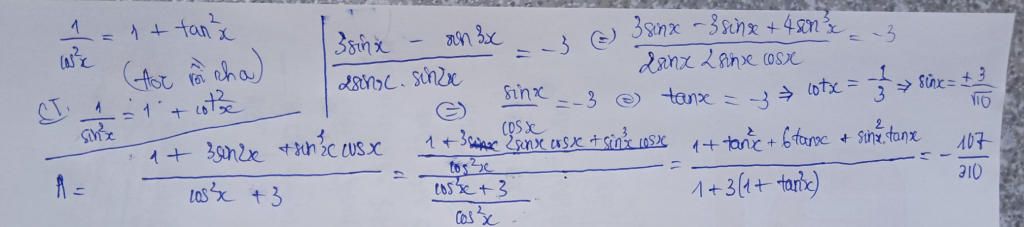 1/cos²x = 1 + tan²x
(học rồi nha)
CT: 1/sin²x = 1 + cot²x
(3sinx - sin3x)/(2sinx. sin2x) = -3 ⇔ (3sinx - 3sinx + 4sin³x)/(2sinx 2sinx cosx) = -3
⇔ sinx/cosx = -3 ⇔ tanx = -3 ⇒ cotx = 1/3 ⇒ sinx = ±3/√10
A = (1 + 3sin2x + sin³x cosx)/(cos²x + 3) = ((1 + 3 2sinx cosx + sin³x cosx)/cos²x)/((cos²x + 3)/cos²x) = (1 + tan²x + 6tanx + sin²x.tanx)/(1 + 3(1 + tan²x)) = -107/310